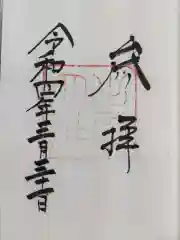 奉拝
令和四年三月三十一日